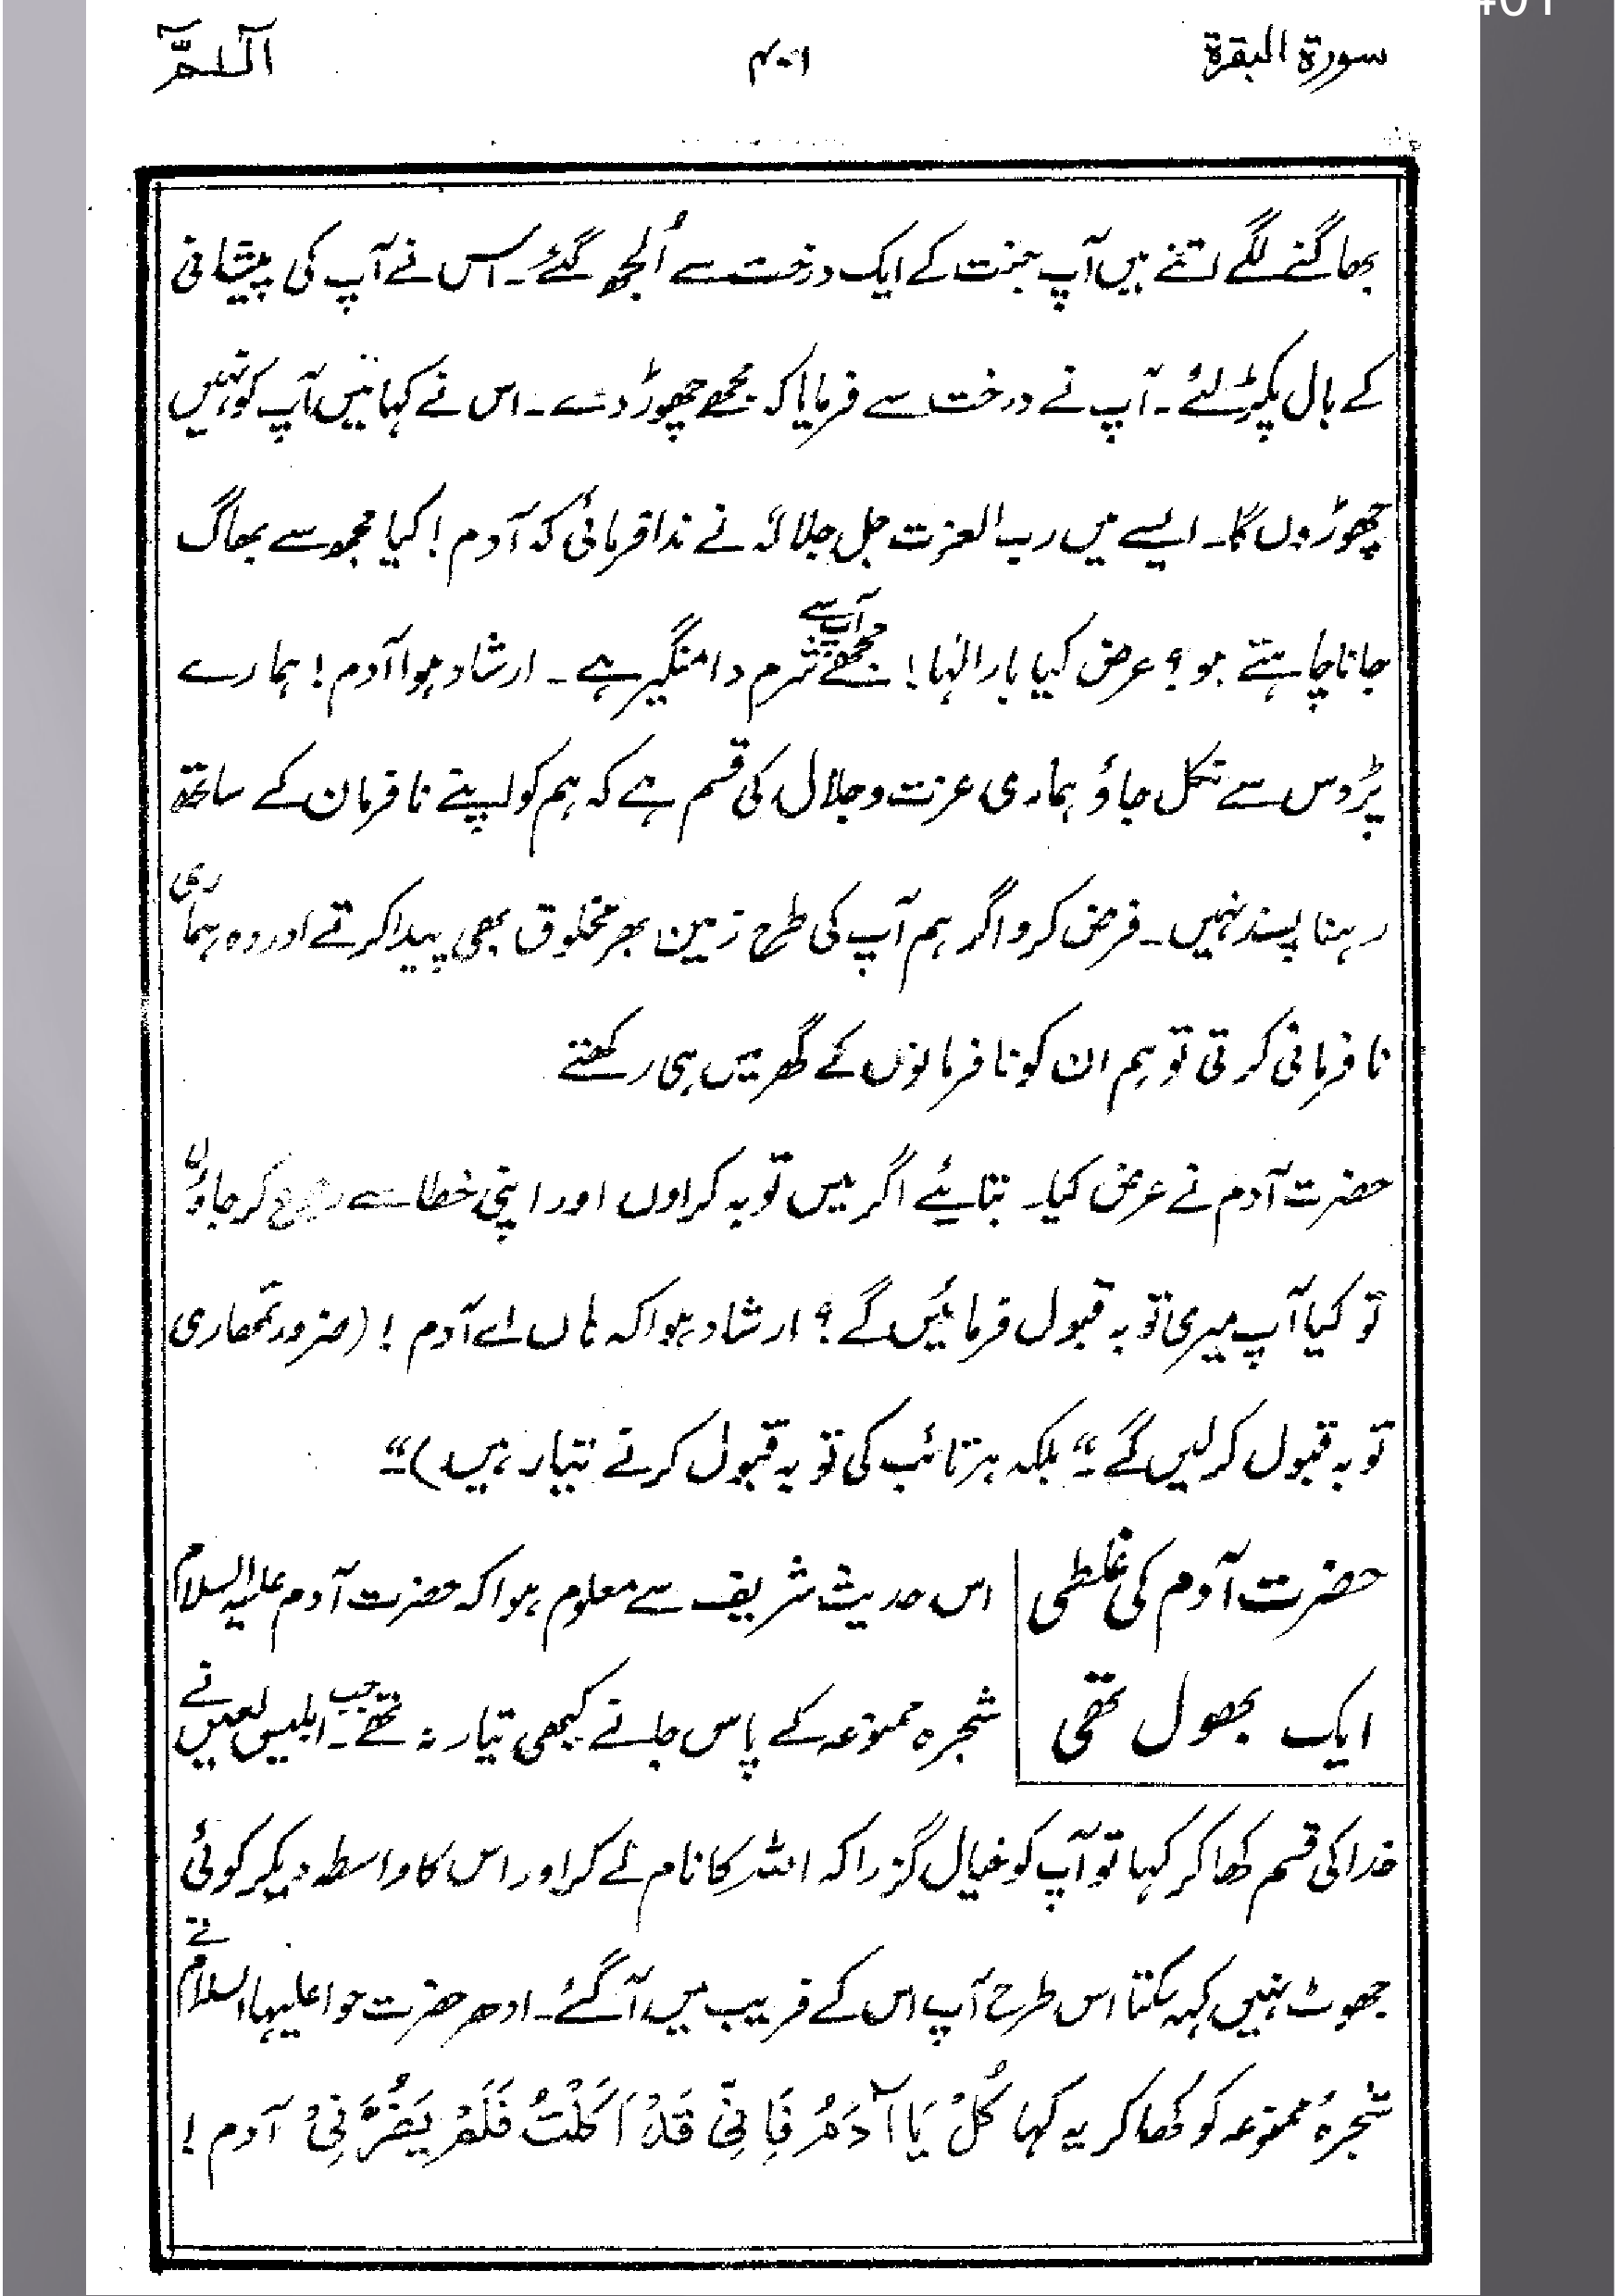 سورۃ البقرۃ ۴۰۱ آلٓمّٓ
بھاگنے لگے اتنے میں آپ جنت کے ایک درخت سے اُلجھ گئے۔ اس نے آپ کی پیشانی
کے بال پکڑ لئے۔ آپ نے درخت سے فرمایا کہ مجھے چھوڑ دے۔ اس نے کہا میں آپ کو نہیں
چھوڑوں گا۔ ایسے میں رب العزت جل جلالہٗ نے ندا فرمائی کہ آدم! کیا مجھ سے بھاگ
جانا چاہتے ہو؟ عرض کیا بار الٰہا! مجھے آپ سے شرم دامنگیر ہے۔ ارشاد ہوا آدم! ہمارے
پڑوس سے نکل جاؤ ہماری عزت و جلال کی قسم ہے کہ ہم کو اپنے نافرمان کے ساتھ
رہنا پسند نہیں۔ فرض کرو اگر ہم آپ کی طرح زمین بھر مخلوق بھی پیدا کرتے اور وہ ہماری
نافرمانی کرتی تو ہم ان کو نافرمانوں کے گھر میں ہی رکھتے
حضرت آدم نے عرض کیا۔ بتایئے اگر میں توبہ کر لوں اور اپنی خطا سے رجوع کر جاؤں
تو کیا آپ میری توبہ قبول فرمائیں گے؟ ارشاد ہوا کہ ہاں اے آدم! (ضرور تمھاری
توبہ قبول کرلیں گے۔“ بلکہ ہر تائب کی توبہ قبول کرنے تیار ہیں)۔“
حضرت آدم کی غلطی
ایک بھول تھی
اس حدیث شریف سے معلوم ہوا کہ حضرت آدم علیہ السلام
شجرہ ممنوعہ کے پاس جانے کبھی تیار نہ تھے۔ جب ابلیس لعین نے
خدا کی قسم کھا کر کہا تو آپ کو خیال گزرا کہ اللہ کا نام لے کر اور اس کا واسطہ دیکر کوئی
جھوٹ نہیں کہہ سکتا اس طرح آپ اس کے فریب میں آگئے۔ ادھر حضرت حوا علیہا السلام نے
شجرۂ ممنوعہ کو کھا کر یہ کہا کُلْ یَا آدَمُ فَاِنِّیْ قَدْ اَکَلْتُ فَلَمْ یَضُرَّنِیْ آدم!